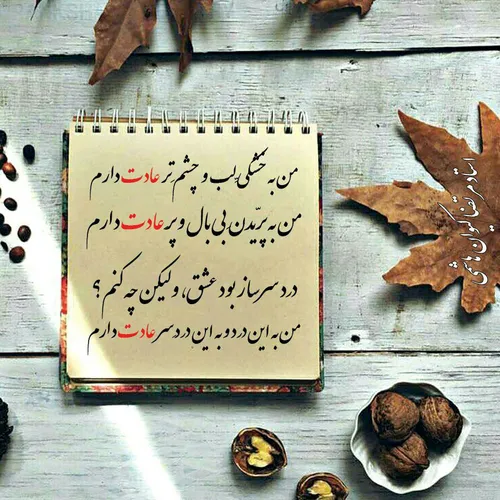 من به خشکی لب و چشم تر عادت دارم
من به پریدن بی بال و پر عادت دارم
درد سر ساز بود عشق، ولیکن چه کنم؟
من به این درد و به این درد سر عادت دارم
استاد مرتضا کیوان هاشمی